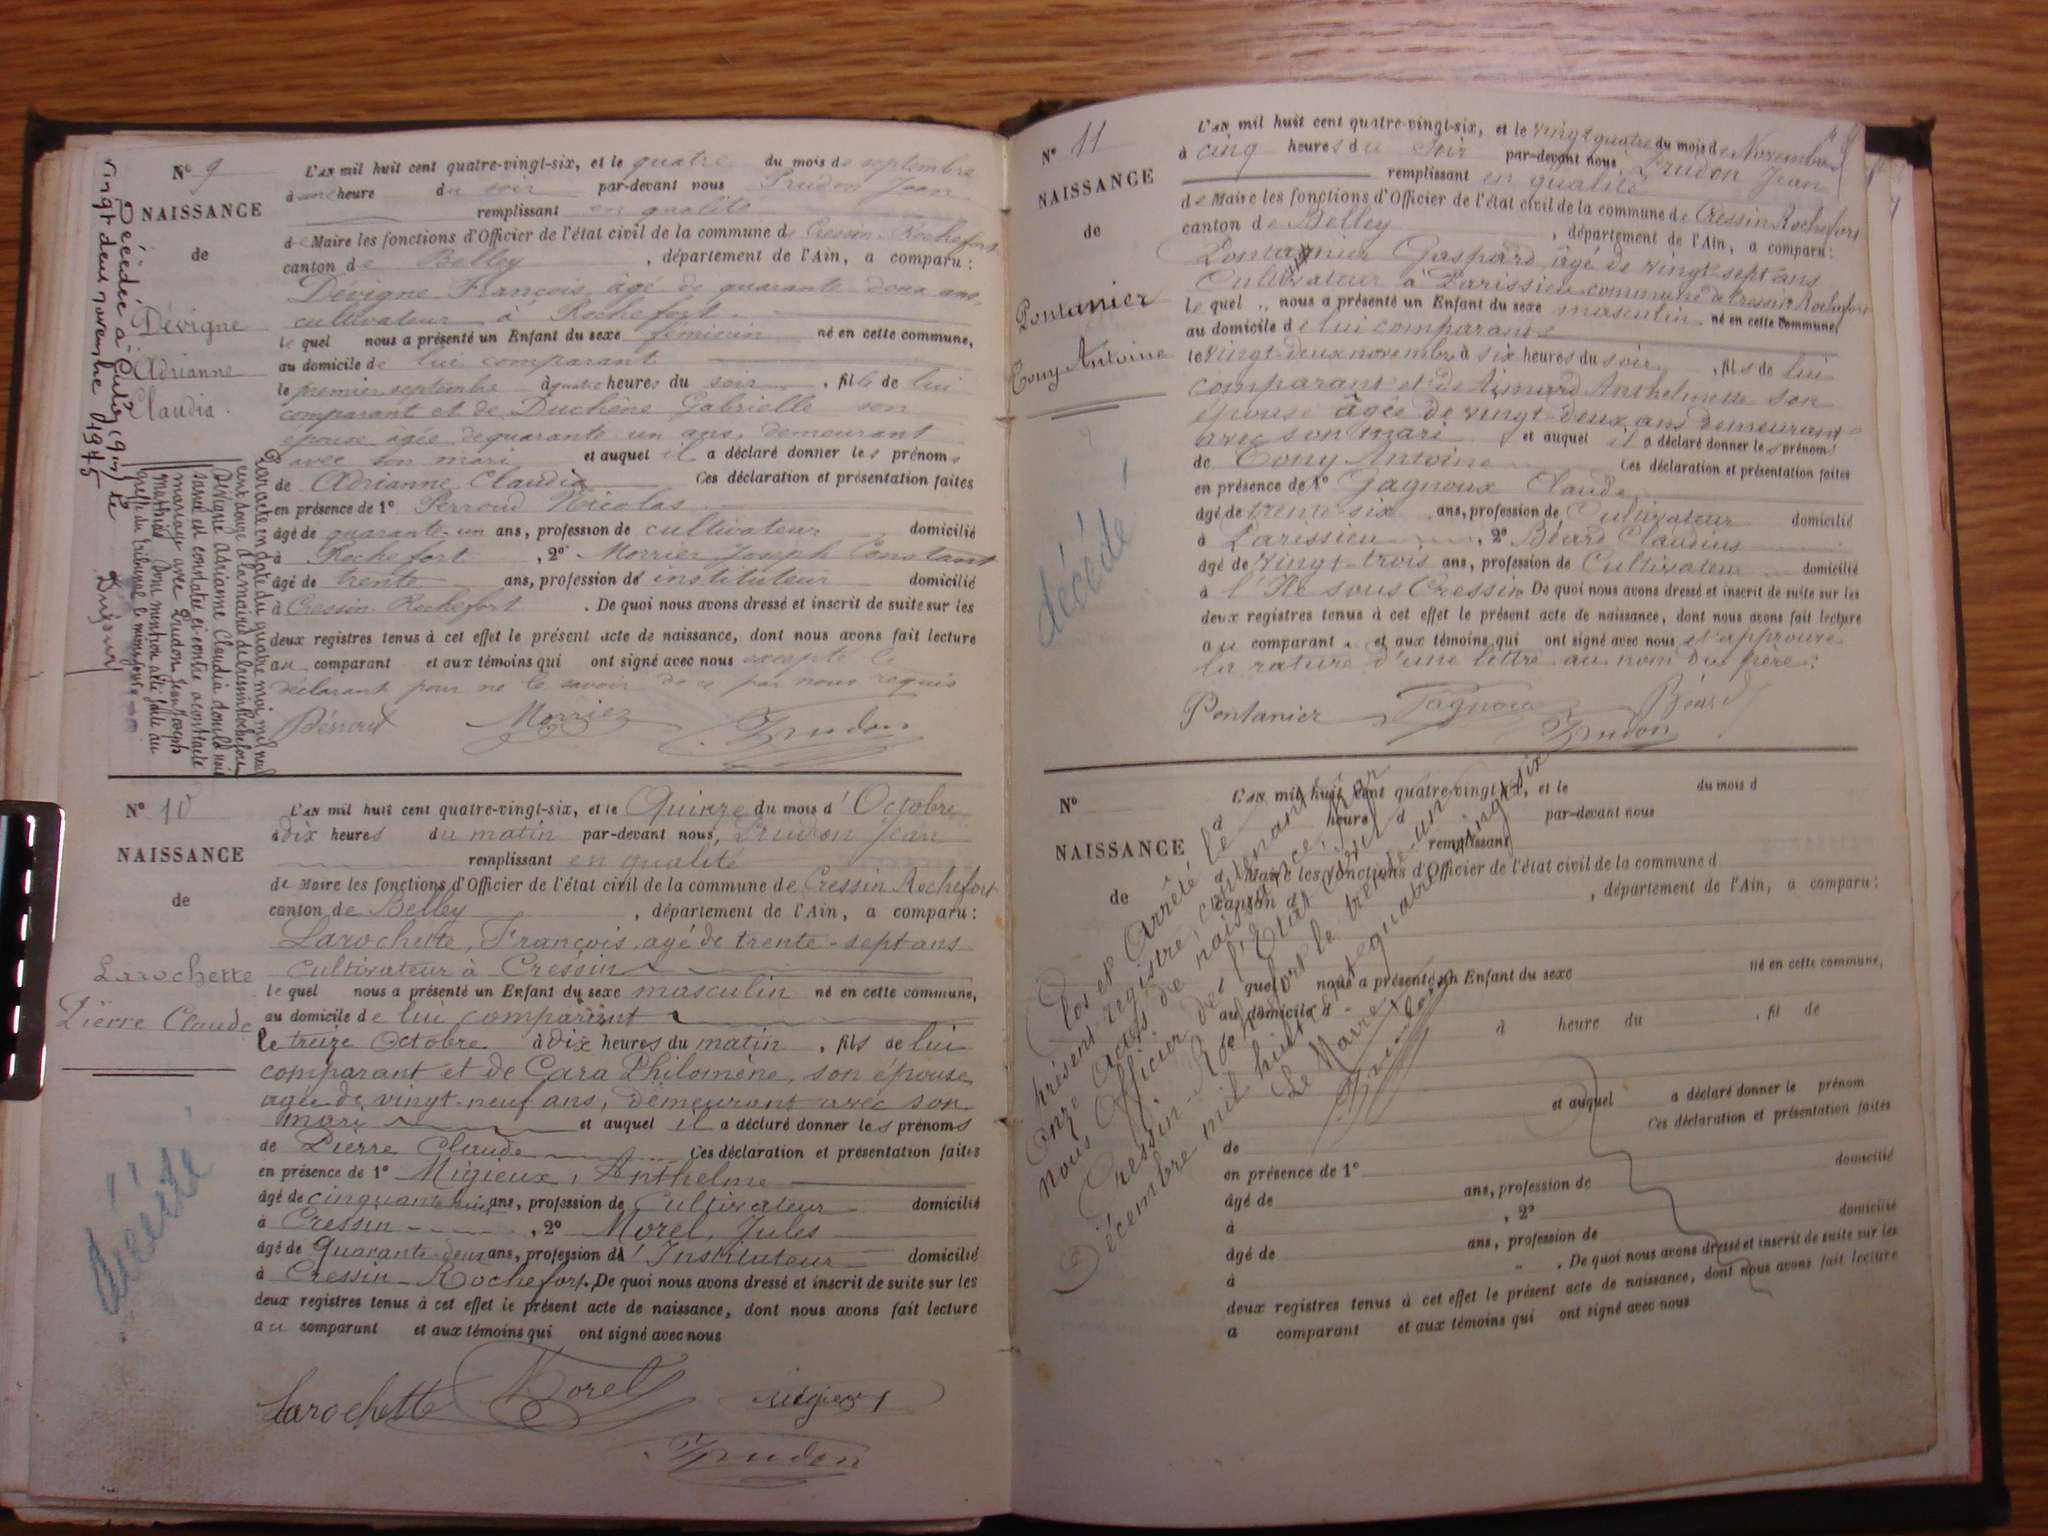 N° 9
NAISSANCE
de
Dévigne
Adrianne
Claudia.
Décédée à Culoz (Ain) le
vingt deux novembre 1945
L'AN mil huit cent quatre-vingt-six, et le quatre du mois de septembre
à une heure du soir par-devant nous Prudon Jean
remplissant en qualité
de Maire les fonctions d'Officier de l'état civil de la commune de Cressin-Rochefort
canton de Belley, département de l'Ain, a comparu:
Dévigne François, âgé de quarante deux ans,
cultivateur à Rochefort
le quel nous a présenté un Enfant du sexe féminin né en cette commune,
au domicile de lui comparant
le premier septembre à quatre heures du soir, fille de lui
comparant et de Duchêne Gabrielle son
épouse âgée de quarante un ans, demeurant
avec son mari et auquel il a déclaré donner les prénoms
de Adrianne Claudia Ces déclaration et présentation faites
en présence de 1° Perroud Nicolas
âgé de quarante-un ans, profession de cultivateur domicilié
à Rochefort, 2° Morrier Joseph Constant
âgé de trente ans, profession de instituteur domicilié
à Cressin-Rochefort. De quoi nous avons dressé et inscrit de suite sur les
deux registres tenus à cet effet le présent acte de naissance, dont nous avons fait lecture
au comparant et aux témoins qui ont signé avec nous excepté le
déclarant pour ne le savoir de ce par nous requis
Morrier Prudon
Par acte en date du quatre mai mil neuf
cent douze à la mairie de Cressin Rochefort
Dévigne Adrianne Claudia
mariage avec Prudon Jean Joseph
N° 10
NAISSANCE
de
Larochette
Pierre Claude
décédé
L'AN mil huit cent quatre-vingt-six, et le Quinze du mois d'Octobre
à dix heures du matin par-devant nous, Prudon Jean
remplissant en qualité
de Maire les fonctions d'Officier de l'état civil de la commune de Cressin Rochefort
canton de Belley, département de l'Ain, a comparu:
Larochette, François, agé de trente-sept ans
Cultivateur à Cressin
le quel nous a présenté un Enfant du sexe masculin né en cette commune,
au domicile de lui comparant
le treize Octobre à dix heures du matin, fils de lui
comparant et de Cara Philomène, son épouse
agée de vingt-neuf ans, demeurant avec son
mari et auquel il a déclaré donner les prénoms
de Pierre Claude Ces déclaration et présentation faites
en présence de 1° Migieux, Anthelme
âgé de cinquante huit ans, profession de Cultivateur domicilié
à Cressin, 2° Morel, Jules
âgé de quarante-deux ans, profession d'Instituteur domicilié
à Cressin-Rochefort. De quoi nous avons dressé et inscrit de suite sur les
deux registres tenus à cet effet le présent acte de naissance, dont nous avons fait lecture
au comparant et aux témoins qui ont signé avec nous
Larochette Morel Migieux
Prudon
N° 11
NAISSANCE
de
Pontanier
Tony Antoine
décédé
L'AN mil huit cent quatre-vingt-six, et le vingt quatre du mois de Novembre
à cinq heures du soir par-devant nous Prudon Jean
remplissant en qualité
de Maire les fonctions d'Officier de l'état civil de la commune de Cressin Rochefort
canton de Belley, département de l'Ain, a comparu:
Pontanier Gaspard, âgé de vingt sept ans
Cultivateur à Parissieu commune de Cressin Rochefort
le quel nous a présenté un Enfant du sexe masculin né en cette commune,
au domicile de lui comparant
le vingt-deux novembre à six heures du soir, fils de lui
comparant et de Aimard Anthelmette son
épouse âgée de vingt-deux ans demeurant
avec son mari et auquel il a déclaré donner les prénoms
de Tony Antoine Ces déclaration et présentation faites
en présence de 1° Jagnoux Claude
âgé de trente six ans, profession de Cultivateur domicilié
à Parissieu, 2° Béard Claudius
âgé de vingt-trois ans, profession de Cultivateur domicilié
à l'Ile sous Cressin De quoi nous avons dressé et inscrit de suite sur les
deux registres tenus à cet effet le présent acte de naissance, dont nous avons fait lecture
au comparant et aux témoins qui ont signé avec nous n'approuvé
la rature d'une lettre au nom du père:
Pontanier Jagnoux Béard
Prudon
N°
NAISSANCE
de
L'AN mil huit cent quatre-vingt-six, et le du mois d
à heure d par-devant nous
remplissant
d Maire les fonctions d'Officier de l'état civil de la commune d
canton d, département de l'Ain, a comparu:
l quel nous a présenté un Enfant du sexe né en cette commune,
au domicile d
à heure du, fil de
et auquel a déclaré donner le prénom
de Ces déclaration et présentation faites
en présence de 1°
âgé de ans, profession de domicilié
à, 2°
âgé de ans, profession de domicilié
à. De quoi nous avons dressé et inscrit de suite sur les
deux registres tenus à cet effet le présent acte de naissance, dont nous avons fait lecture
a comparant et aux témoins qui ont signé avec nous
Clos et Arrêté le
présent registre, contenant
onze actes de naissance, par
nous Officier de l'Etat civil de
Cressin-Rochefort le trente-un
Décembre mil huit cent quatre vingt six
Le Maire
Prudon